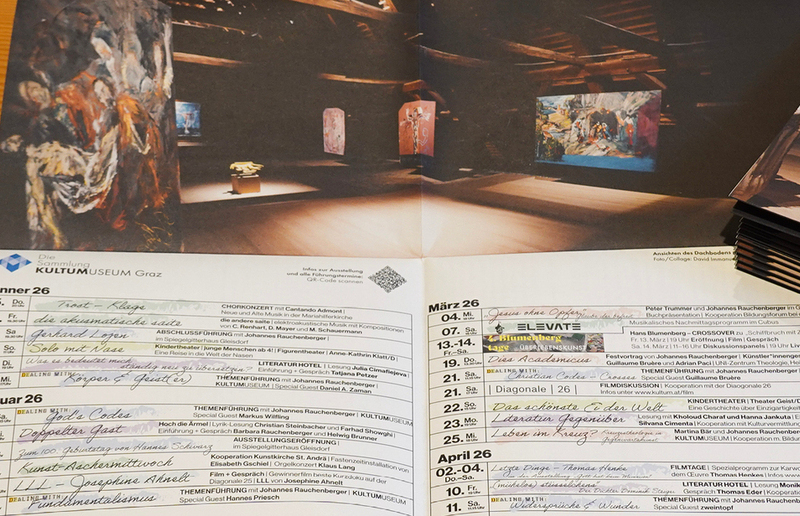 Die
Sammlung
KULTUMUSEUM Graz
Infos zur Ausstellung
und alle Führungstermine:
QR-Code scannen
Ansichten des Dachbodens
Foto/Collage: David
nner 26
Do.
Trost – Klage
CHORKONZERT mit Cantando Admont |
Neue und Alte Musik in der Mariahilferkirche
Fr.
die akusmatische saite
die andere saite | elektroakustische Musik mit Kompositionen
von C. Renhart, D. Mayer und M. Schauermann
Sa
Gerhard Lojen
ABSCHLUSSFÜHRUNG mit Johannes Rauchenberger |
im Spiegelgitter Gleisdorf
So.
Solo mit Nase
Kindertheater (ab 4) | Figurentheater | Anne-Kathrin Klatt/D |
Eine Reise in die Welt der Nasen
Di.
Was es bedeutet
ständig neu zu übersetzen?
LITERATUR HOTEL | Lesung Julia Cimafiejeva
Einführung + Gespräch Tatjana Petzer
Mi.
DEALING WITH:
Körper & Geist(er)
THEMENFÜHRUNG mit Johannes Rauchenberger |
KULTUMUSEUM | Special Guest Daniel A. Zaman
uar 26
DEALING WITH:
God's Codes
THEMENFÜHRUNG mit Johannes Rauchenberger | KULTUMUSEUM
Special Guest Markus Wilfling
Doppelter Gast
Hoch die Ärmel | Lyrik-Lesung Christian Steinbacher und Farhad Showghi |
Einführung + Gespräch Barbara Rauchenberger und Helwig Brunner
Zum 100. Geburtstag von Hannes Schwarz
AUSSTELLUNGSERÖFFNUNG |
im Spiegelgitterhaus Gleisdorf
Kunst-Aschermittwoch
Kooperation Kunstkirche St. Andrä | Fastenzeitinstallation von
Elisabeth Gschiel | Orgelkonzert Klaus Lang
LLL – Josephine Ahnelt
Film + Gespräch | Gewinnerfilm beste Kurzdoku auf der
Diagonale 25 | LLL von Josephine Ahnelt
DEALING WITH:
Fundamentalismus
THEMENFÜHRUNG mit Johannes Rauchenberger | KULTUMUSEUM
Special Guest Hannes Priesch
März 26
04. Mi.
Jesus ohne Opfer
Peter Trummer und Johannes Rauchenberger im
Buchpräsentation | Kooperation Bildungsforum bei
07. Sa.
Musikalisches Nachmittagsprogramm im Cubus
13.-14.
Fr.–Sa.
ELEVATE
& Blumenberg
tage
Hans Blumenberg – CROSSOVER zu „Schiffbruch mit
Fr. 13. März | 19 Uhr Eröffnung | Film | Gespräch
Sa. 14. März | 11–16 Uhr Diskussionspanels | 19 Uhr
19. Do.
Dies Academicus
Festvortrag mit Johannes Rauchenberger | Künstler*innengespräch
Guillaume Bruère und Adrian Paci | UNI-Zentrum Theologie
21. Sa.
DEALING WITH:
Christian Codes
THEMENFÜHRUNG mit Johannes Rauchenberger |
Special Guest Guillaume Bruère
21. Sa.
| Diagonale | 26 |
FILMDISKUSSION | Kooperation mit der Diagonale 26
Infos unter www.kultum.at/film
22. So.
Das schönste Ei der Welt
KINDERTHEATER | Theater Geist/D
Eine Geschichte über Einzigartigkeit
23. Mo.
Literatur Gegenüber
Lesung mit Kholoud Charaf und Hanna Jankuta |
Silvana Cimenta | Kooperation mit Kulturvermittlung
25. Mi.
Leben im Kreuz?
Martina Bär und Johannes Rauchenberger |
KULTUMUSEUM | Kooperation m. Bildungsforum
April 26
02.–04.
Do.–Sa.
Letzte Dinge – Thomas Henke
FILMTAGE | Spezialprogramm zur Karwoche
dem Œuvre Thomas Henkes | Infos www
10. Fr.
(mühelos)
Der Dichter Dominik Steiger
LITERATUR HOTEL | Lesung
Gespräch Thomas Eder | Kooperation
11. Sa.
DEALING WITH:
Widersprüche & Wunder
THEMENFÜHRUNG mit Johannes Rauchenberger |
Special Guest zweintopf